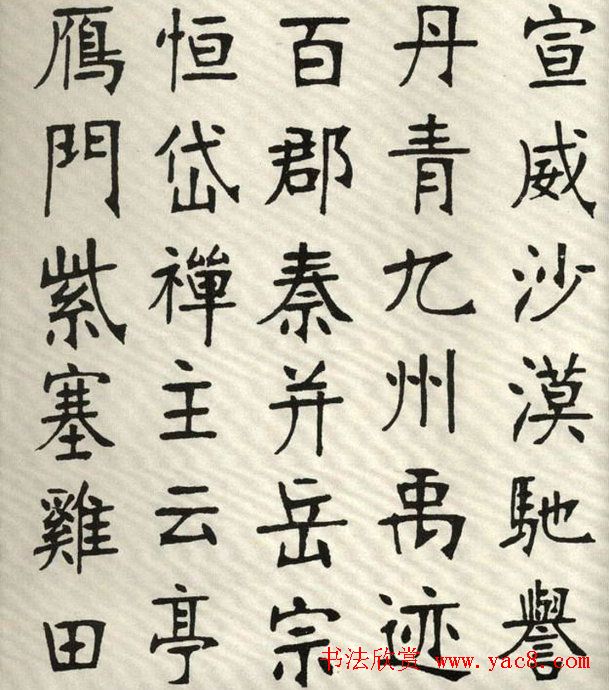 宣威沙漠馳譽
丹青九州禹迹
百郡秦并岳宗
恒岱禪主云亭
雁門紫塞雞田
书法欣赏 www.yac8.com